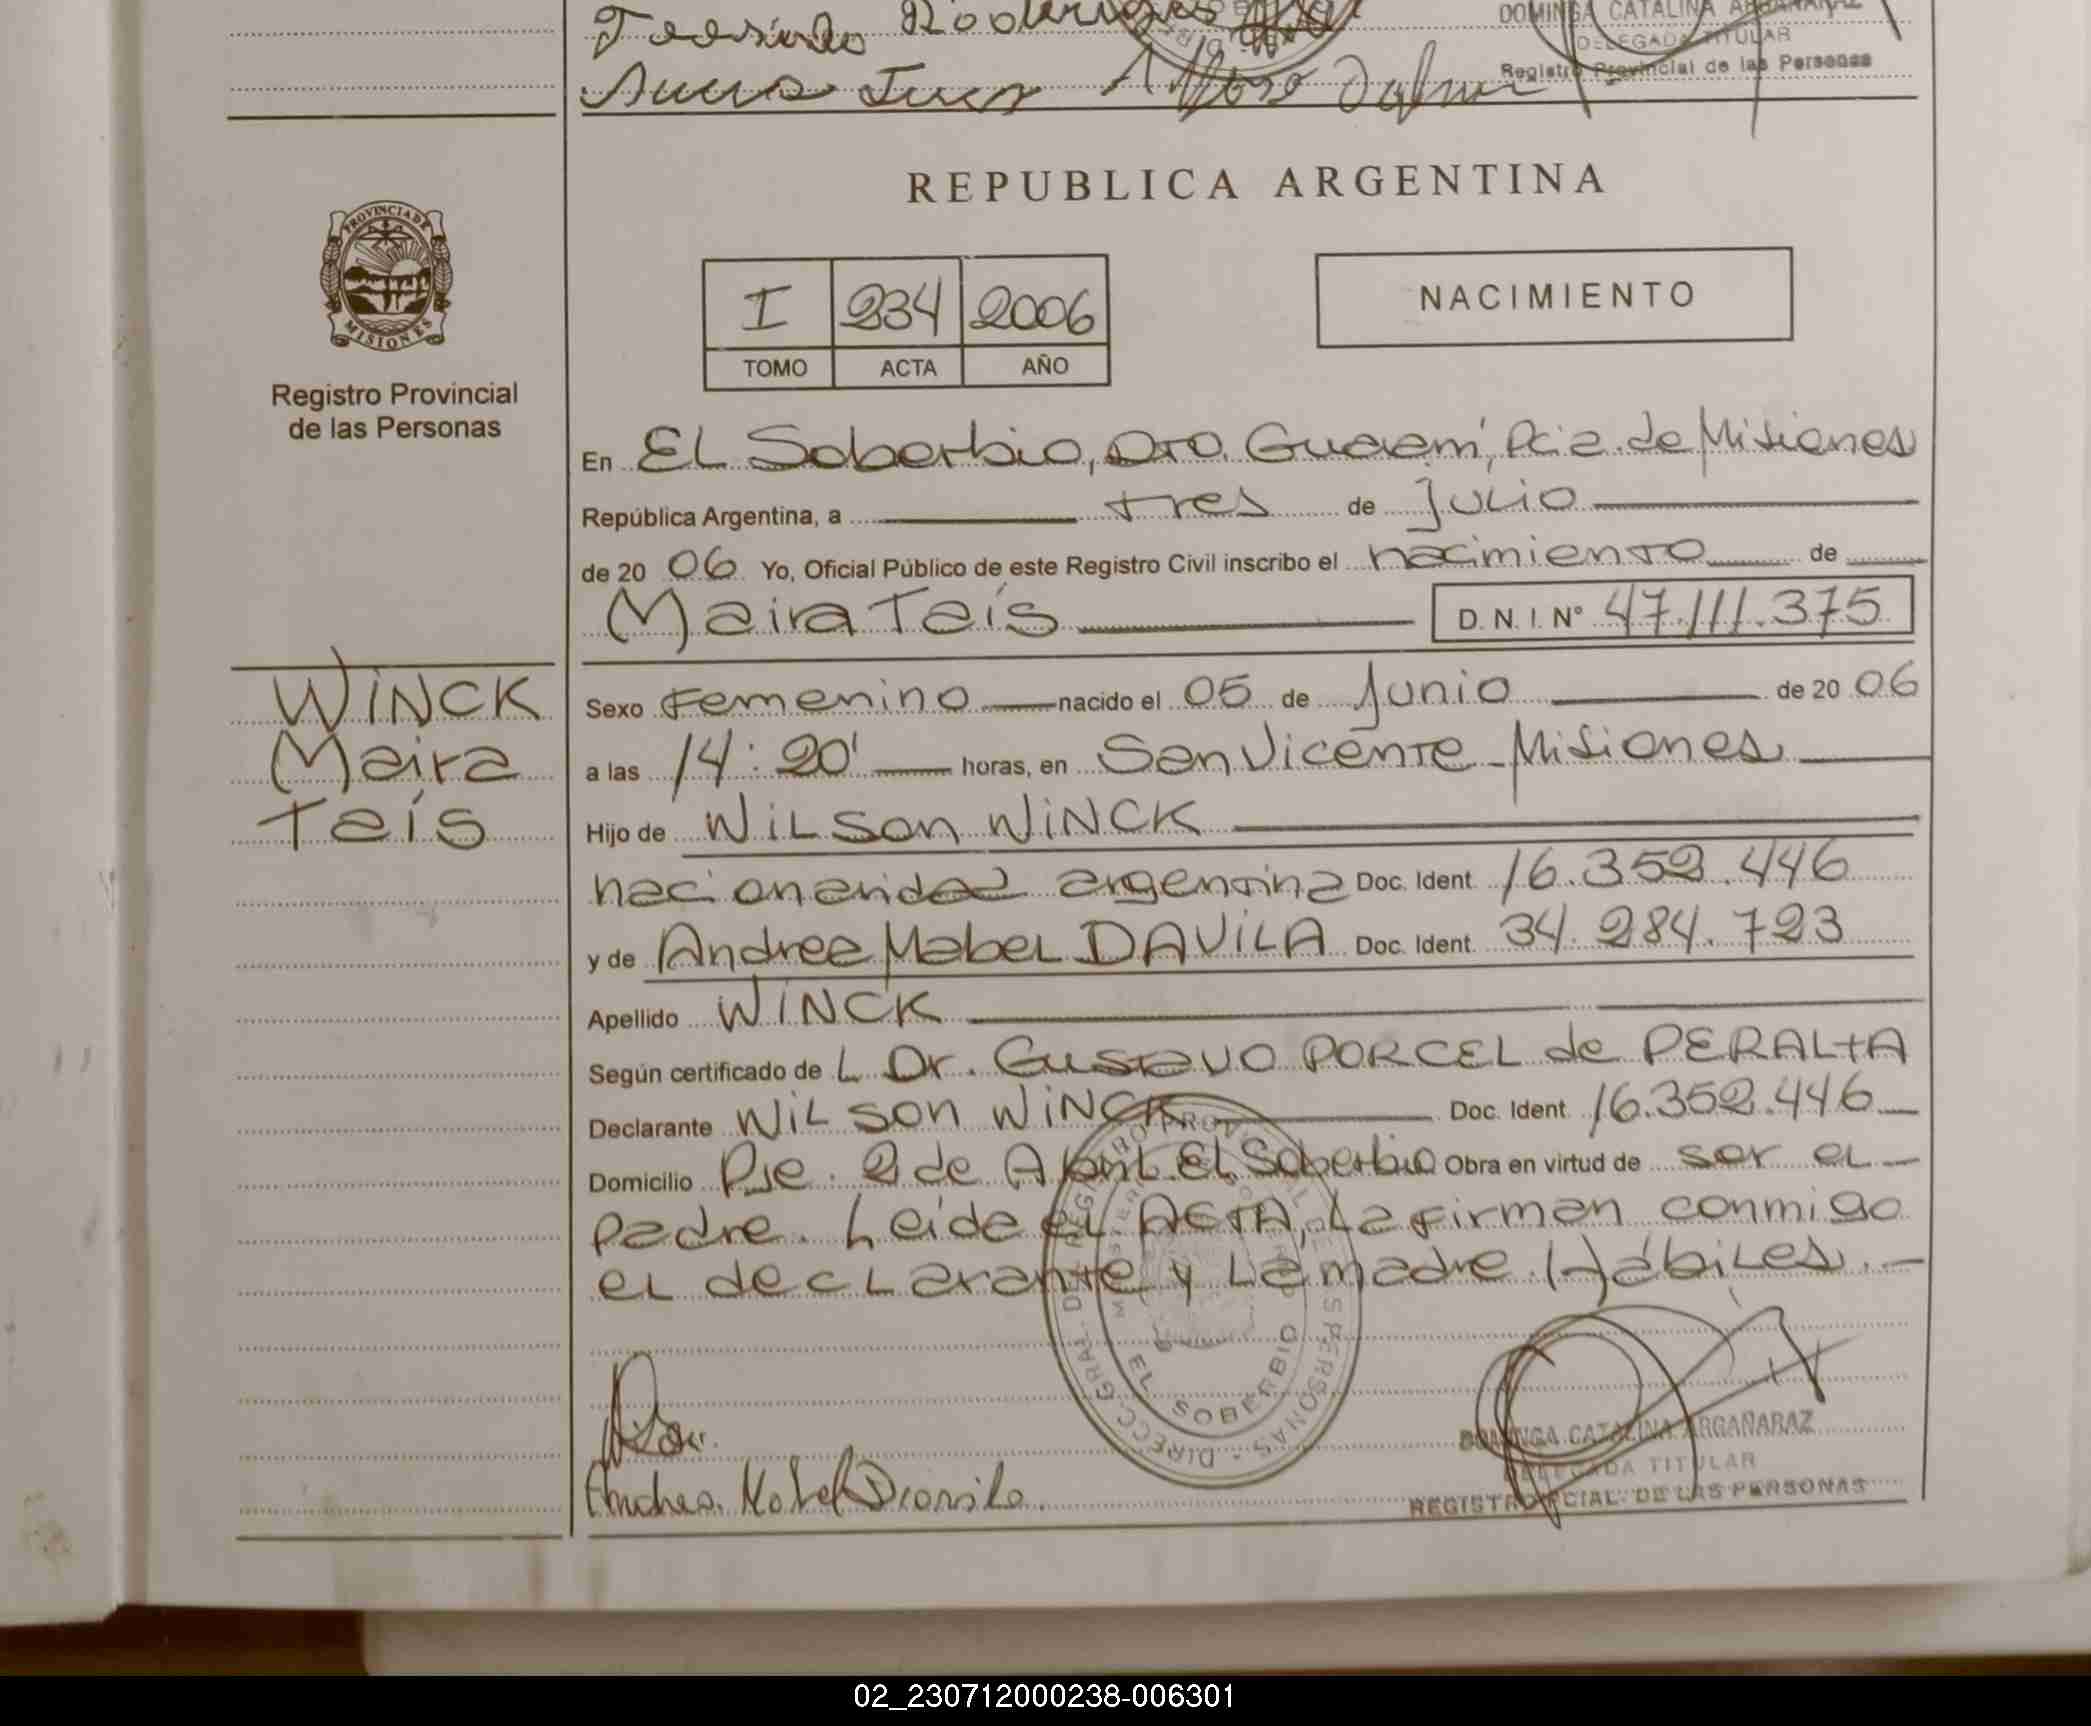 DOMINGA CATALINA ARGAÑARAZ
DELEGADA TITULAR
Registro Provincial de las Personas
REPUBLICA ARGENTINA
PROVINCIA DE
MISIONES
Registro Provincial
de las Personas
I 234 2006
TOMO ACTA AÑO
NACIMIENTO
En EL Soberbio, Dto. Guaraní, Pcia. de Misiones
República Argentina, a tres de Julio
de 20 06 Yo, Oficial Público de este Registro Civil inscribo el nacimiento de
Maira Taís D. N. I. N° 47.111.375
WINCK
Maira
Taís
Sexo Femenino nacido el 05 de Junio de 20 06
a las 14:20' horas, en San Vicente - Misiones
Hijo de WiLson WiNCK
nacionalidad argentina Doc. Ident. 16.352.446
y de Andrea Mabel DAVILA Doc. Ident. 34.284.723
Apellido WiNCK
Según certificado de L Dr. Gustavo PORCEL de PERALTA
Declarante WiLson WiNCK Doc. Ident. 16.352.446
Domicilio Pje. 2 de Abril. El Soberbio Obra en virtud de ser el
padre. Leída el ACTA, la firman conmigo
el declarante y la madre. Hábiles.
DIRECC. GRAL. DE REGISTRO PROVINCIAL DE LAS PERSONAS
EL SOBERBIO
DOMINGA CATALINA ARGAÑARAZ
DELEGADA TITULAR
REGISTRO PCIAL. DE LAS PERSONAS
02_230712000238-006301